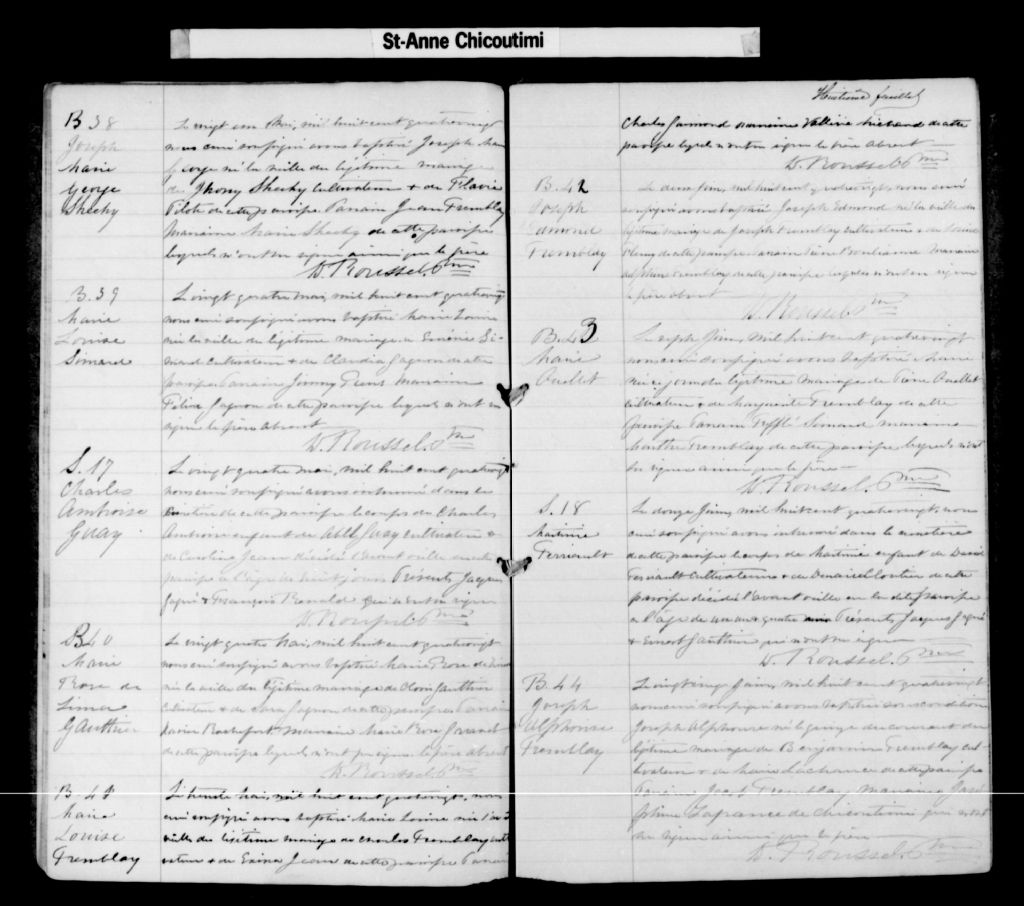 St-Anne Chicoutimi
B 38
Joseph
Marie
George
Sheehy
Le vingt un Mai, mil huit cent quatrevingt
nous curé soussigné avons baptisé Joseph Marie
George né la veille du légitime mariage
de Jhony Sheehy Cultivateur & de Flavie
Pilote de cette paroisse. Parrain Jean Tremblay
Marraine Marie Sheehy de cette paroisse
lesquels n'ont su signer ainsi que le père
D. Roussel Ptre
B. 39
Marie
Louise
Simard
Le vingt quatre Mai, mil huit cent quatrevingt
nous curé soussigné avons baptisé Marie Louise
née la veille du légitime mariage de Si-
mard Cultivateur & de Claudia Gagnon de cette
paroisse Parrain Jimmy Marraine
Gagnon de cette paroisse lesquels n'ont su
signer le père absent
D. Roussel Ptre
S. 17
Charles
Ambroise
Guay
Le vingt quatre Mai, mil huit cent quatrevingt
nous curé soussigné avons inhumé dans le
cimetière de cette paroisse le corps de Charles
Ambroise enfant de Abel Guay cultivateur &
de Caroline Jean décédé l'avant veille en cette
paroisse à l'âge de huit jours Présents Jacques
& François qui n'ont su signer
D. Roussel Ptre
B 40
Marie
Rose de
Lima
Gauthier
Le vingt quatre Mai, mil huit cent quatrevingt
nous curé soussigné avons baptisé Marie Rose de Lima
née la veille du légitime mariage de Gauthier
Cultivateur & de Gagnon de cette paroisse Parrain
Marraine Marie Rose
de cette paroisse lesquels n'ont pu signer le père absent
D. Roussel Ptre
B. 41
Marie
Louise
Tremblay
Le trente Mai, mil huit cent quatrevingt, nous
curé soussigné avons baptisé Marie Louise née l'avant
veille du légitime mariage de Charles Tremblay culti-
vateur & de Jean de cette paroisse Parrain
Huitième feuillet
Charles Marraine de cette
paroisse lesquels n'ont su signer le père absent
D. Roussel Ptre
B. 42
Joseph
Edmond
Tremblay
Le deux Juin, mil huit cent quatrevingt, nous curé
soussigné avons baptisé Joseph Edmond né la veille du
légitime mariage de Joseph Tremblay cultivateur & de
de cette paroisse Parrain Marraine
Tremblay de cette paroisse lesquels n'ont su signer
le père absent
D. Roussel Ptre
B. 43
Marie
Ouellet
Le sept Juin, mil huit cent quatrevingt
nous curé soussigné avons baptisé Marie
née ce jour du légitime mariage de Pierre Ouellet
Cultivateur & de Marguerite Tremblay de cette
paroisse Parrain Simard marraine
Marthe Tremblay de cette paroisse lesquels n'ont
su signer ainsi que le père
D. Roussel. Ptre
S. 18
Martine
Perreault
Le douze Juin, mil huit cent quatrevingt, nous
curé soussigné avons inhumé dans le cimetière
de cette paroisse le corps de enfant de David
Cultivateur & de Cloutier de cette
paroisse décédé l'avant veille en la dite paroisse
à l'âge de un an & quatre mois Présents Jacques
& Ernest Gauthier qui n'ont su signer
D. Roussel. Ptre
B. 44
Joseph
Alphonse
Tremblay
Le vingt Juin, mil huit cent quatrevingt
nous curé soussigné avons baptisé sous condition
Joseph Alphonse né le quinze du courant du
légitime mariage de Benjamin Tremblay cul-
tivateur & de Marie Lachance de cette paroisse
Parrain Tremblay Marraine José-
phine Lafrance de Chicoutimi qui n'ont
su signer ainsi que le père
D. Roussel. Ptre